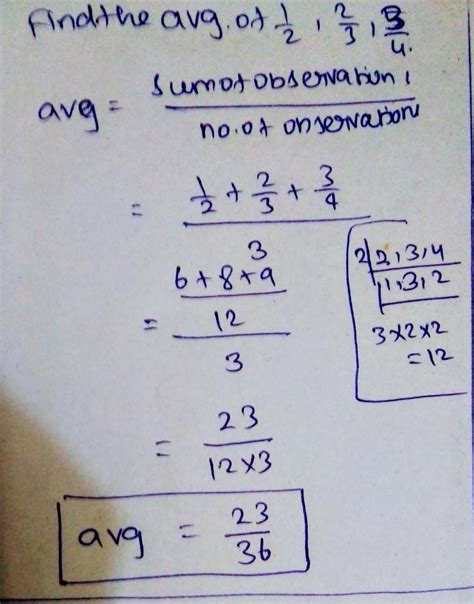 Find the avg. of 1/2, 2/3, 3/4.
avg = sum of observation / no. of observation
= 1/2 + 2/3 + 3/4
3
= 6 + 8 + 9
12
3
2 | 2, 3, 4
1, 3, 2
3×2×2
= 12
= 23
12×3
avg = 23/36